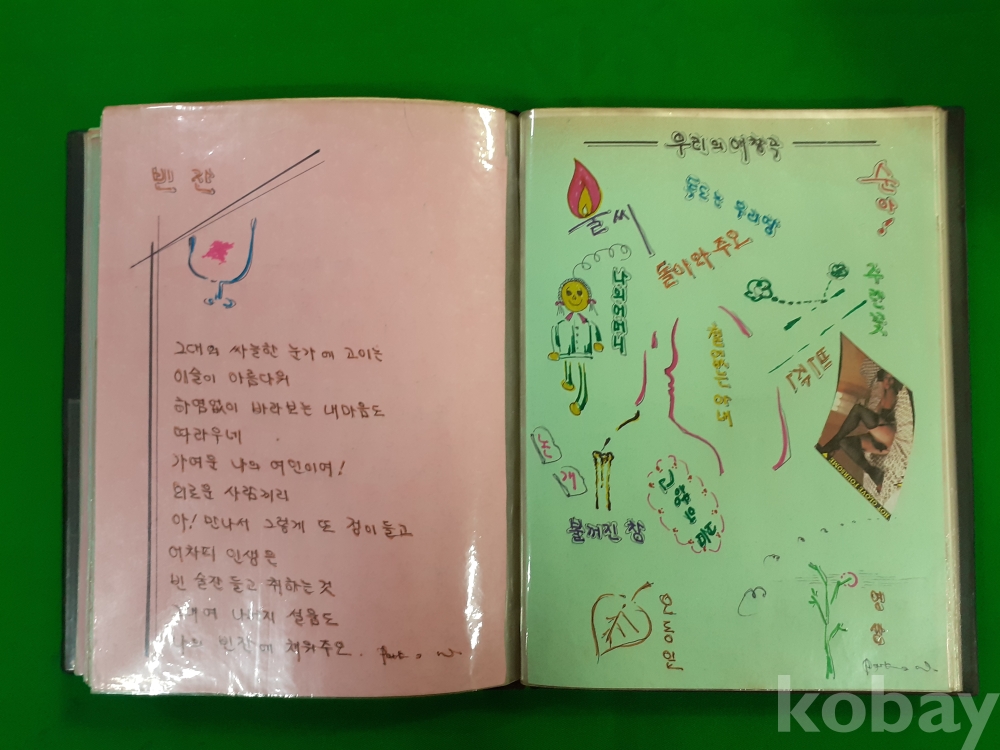 빈 잔
그대의 싸늘한 눈가에 고이는
이슬이 아름다워
하염없이 바라보는 내마음도
따라우네
가여운 나의 여인이여!
외로운 사람끼리
아! 만나서 그렇게 또 정이들고
어차피 인생은
빈 술잔 들고 취하는것
그대여 나머지 설움도
나의 빈잔에 채워주오.
우리의 애창곡
순아!
불씨
돌이와주오
나의어머니
철없는아내
논
개
불꺼진 창
고향의
인동잎
영상
kobay